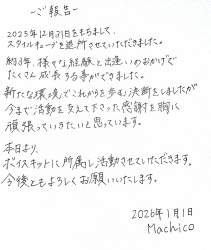 －ご報告－
2025年12月31日をもちまして、
スタイルキューブを退所させていただきました。
約13年、様々な経験と出逢いのおかげで
たくさん成長する事ができました。
新たな環境でこれからを歩む決断をしましたが
今まで活動を支えて下さった感謝を胸に
頑張っていきたいと思っています。
本日より、
ボイスキットに所属し活動させていただきます。
今後ともよろしくお願いいたします。
2026年1月1日
Machico